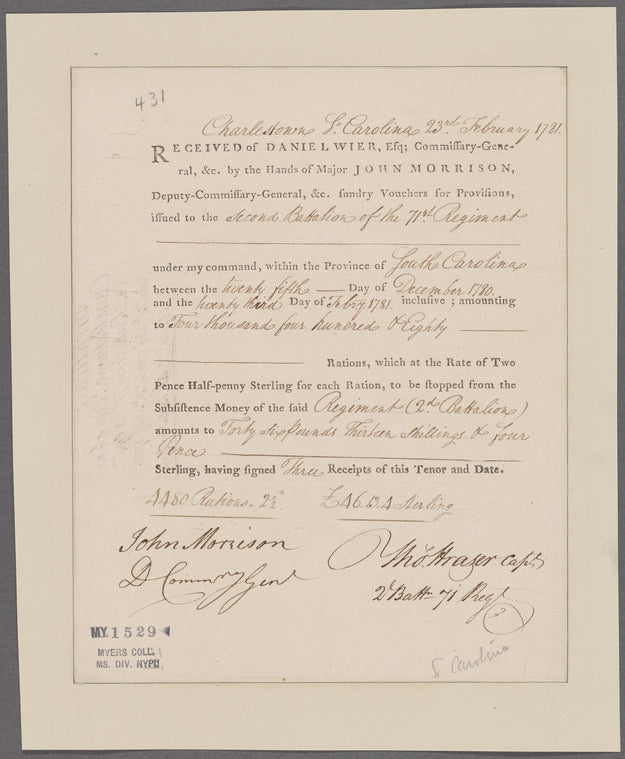 431
Charlestown So. Carolina 23rd February 1781.
RECEIVED of DANIEL WIER, Esq; Commiſſary-Gene-
ral, &c. by the Hands of Major JOHN MORRISON,
Deputy-Commiſſary-General, &c. ſundry Vouchers for Proviſions,
iſſued to the Second Battalion of the 71st Regiment
under my command, within the Province of South Carolina
between the twenty fifth Day of December 1780
and the twenty third Day of Febry 1781. incluſive; amounting
to Four thousand four hundred & Eighty
Rations, which at the Rate of Two
Pence Half-penny Sterling for each Ration, to be ſtopped from the
Subſiſtence Money of the ſaid Regiment (2d. Battalion)
amounts to Forty six pounds Thirteen Shillings & four
Pence
Sterling, having ſigned Three Receipts of this Tenor and Date.
4480 Rations @ 2½ £46.13.4 Sterling
John Morrison
D Commry Genl
Tho. Frazer Capt
2d Battn 71 Regt
MY 1529
MYERS COLL.
MS. DIV. NYPL
S Carolina